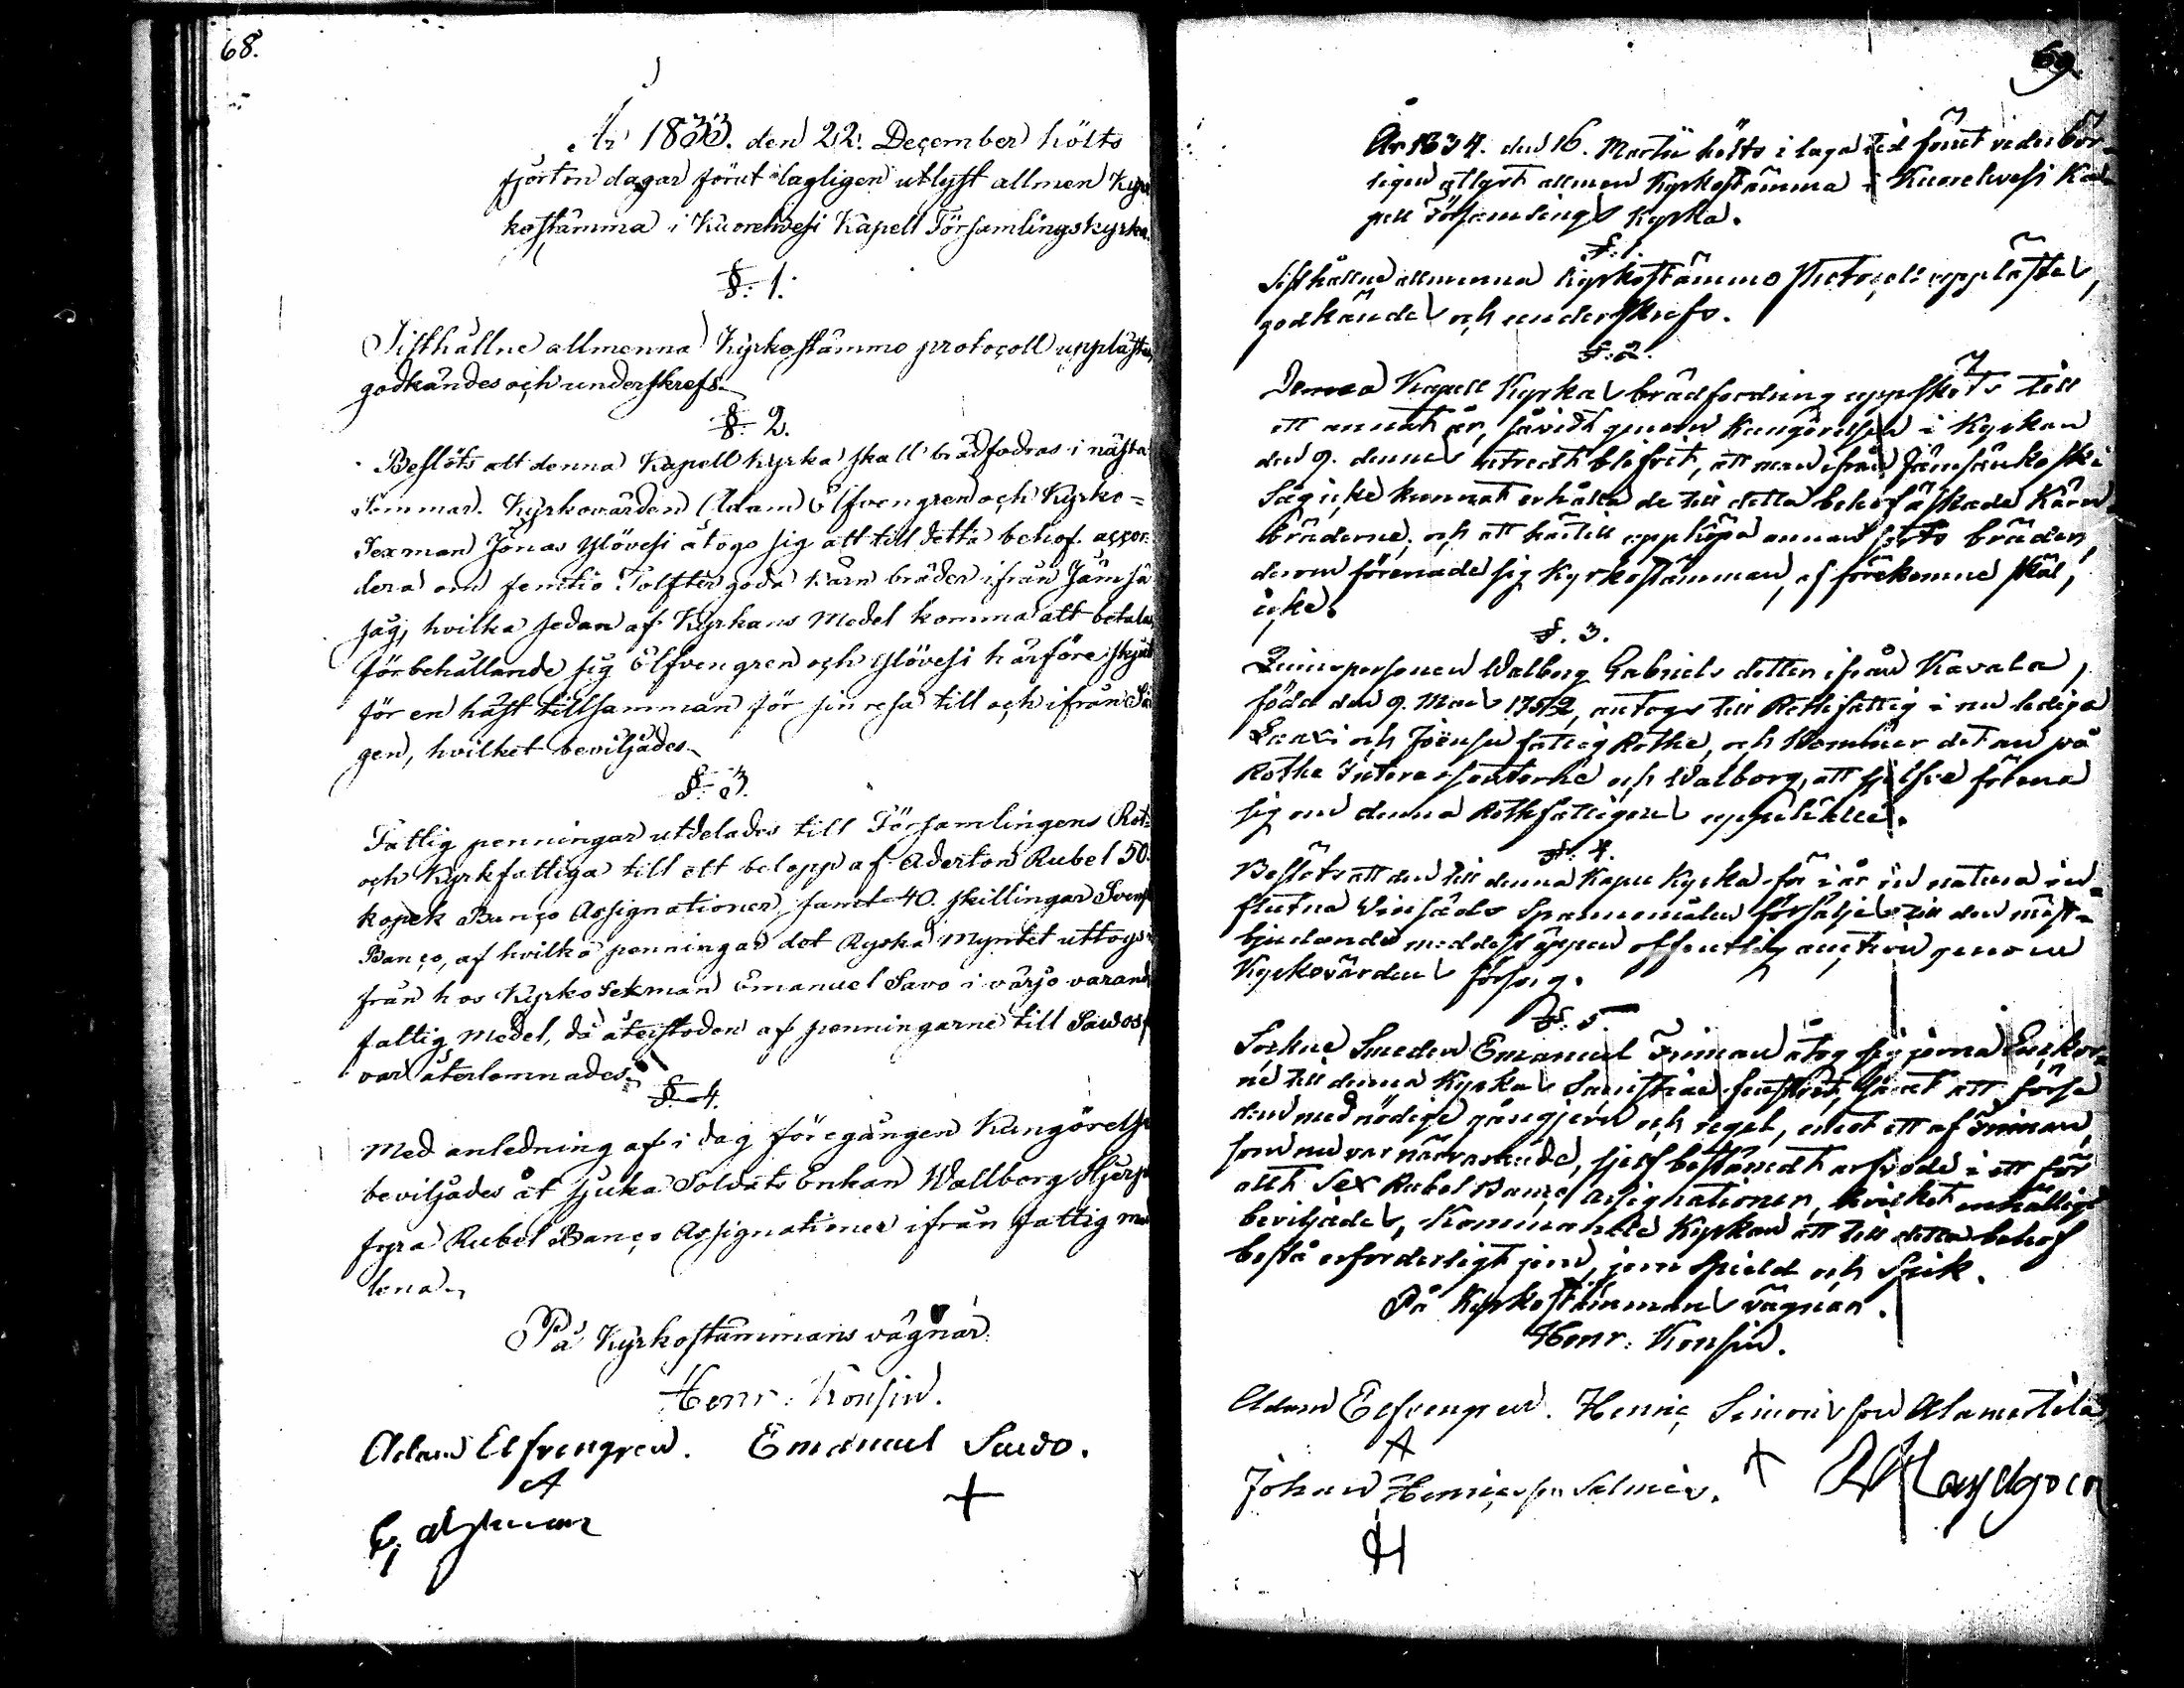 68.
År 1833. den 22. December hölts
fjorton dagar förut lagligen utlyst allmen Kyr
kostämma i Kuorehvesi Kapell Församlings kyrka.
§. 1.
Sisthållne allmenna Kyrkostämmo protocoll upplästes,
godkändes och underskrefs.
§. 2.
Beslöts att denna Kapell kyrka skall brädfodras i nästa
Sommar. Kyrkovärden Adam Elfvengren och Kyrko=
Sexman Jonas Ylövesi åtogo sig att till detta behof accor=
dera om femtio Tolfter goda Kärn bräder ifrån Jämsä
såg, hvilka sedan af Kyrkans Medel komma att betalas,
förbehållande sig Elfvengren och Ylövesi härföre skjuts
för en häst tillsamman för sin resa till och ifrån Så
gen, hvilket beviljades.
§. 3.
Fattig penningar utdelades till Församlingens Rot=
och Kyrkfattiga till ett belopp af Aderton Rubel 50.
kopek Banco Assignationer, samt 40. skillingar Svensk
Banco, af hvilka penningar det Ryska Myntet uttogs i
från hos Kyrko Sexman Emanuel Savo i värjo varande
fattig Medel, då återstoden af penningarne till Savos
var återlemnades.
§. 4.
Med anledning af i dag föregången Kungörelse
beviljades åt sjuka Soldats Enkan Wallborg Hjerpe
fyra Rubel Banco Assignationer ifrån fattig med
lena.
På Kyrkostämmans vägnar:
Henr. Konsin.
Adam Elfvengren. Emanuel Savo.
A +
69.
År 1834. den 16. Martii hölts i laga tid förut vederbör=
ligen utlyst allmen Kyrkostämma i Kuorehvesi Ka=
pell Församlings Kyrka.
§. 1.
Sisthållne allmenna Kyrkostämmo Protocoll upplästes,
godkändes och underskrefs.
§. 2.
Denna Kapell Kyrkas brädfordning uppsköts till
ett annat år, såvidt genom Kungörelsen i Kyrkan
den 9. dennes utredt blifvit, att man ifrån Jämsänkoski
Såg icke kunnat erhålla de till detta behof äskade Kärn
bräderne, och att härtill uppköpa annan sorts bräder,
derom förenade sig Kyrkostämman, af förekomne skäl,
icke.
§. 3.
Qvinspersonen Walborg Gabriels dotter ifrån Kavala,
född den 9. Maii 1752, antogs till Rothfattig i nu lediga
och fattig Rothe, och kommer det an på
Rothe Interessenterne och Walborg, att sjelfve förena
sig om denna Rothfattigens uppehälle.
§. 4.
Beslöts att den till denna Kapell Kyrka för i år in natura in=
flutna Vinsäds Spannemålen försäljes till den mäst=
bjudande medelst öppen offentlig auction genom
Kyrkovärdens försorg.
§. 5.
Sockne Smeden Emanuel Friman åtog sig
till denna Kyrkas Sacristiae fenster, samt att förse
den med nödige gångjern och regel, emot ett af Friman,
som nu var närvarande, sjelf bestämdt arfvode i ett för
allt Sex Rubel Banco Assignationer, hvilket enhälligt
beviljades, kommande Kyrkan att till detta behof
bestå erforderligt jern, jern och Spik.
På Kyrkostämmans vägnar.
Henr. Konsin.
Adam Elfvengren. Henric Simonsson Alamertela
A +
Johan Henricsson Salmis.
H